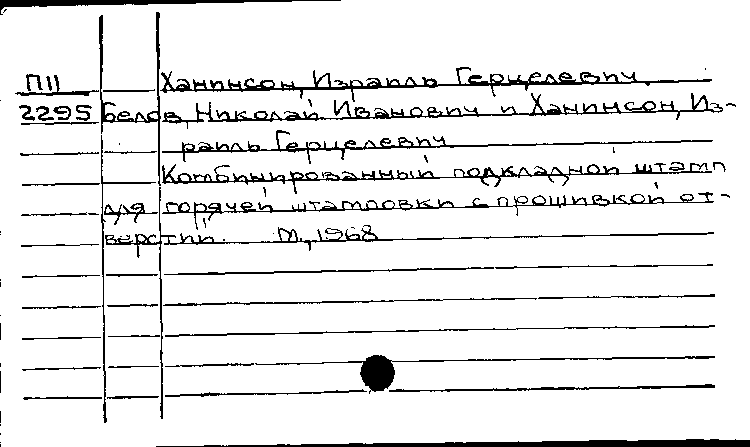 П11 Ханинсон, Израиль Герцелевич.
2295 Белов, Николай Иванович и Ханинсон, Из-
раиль Герцелевич
Комбинированный подкладной штамп
для горячей штамповки с прошивкой от-
верстий. М., 1968